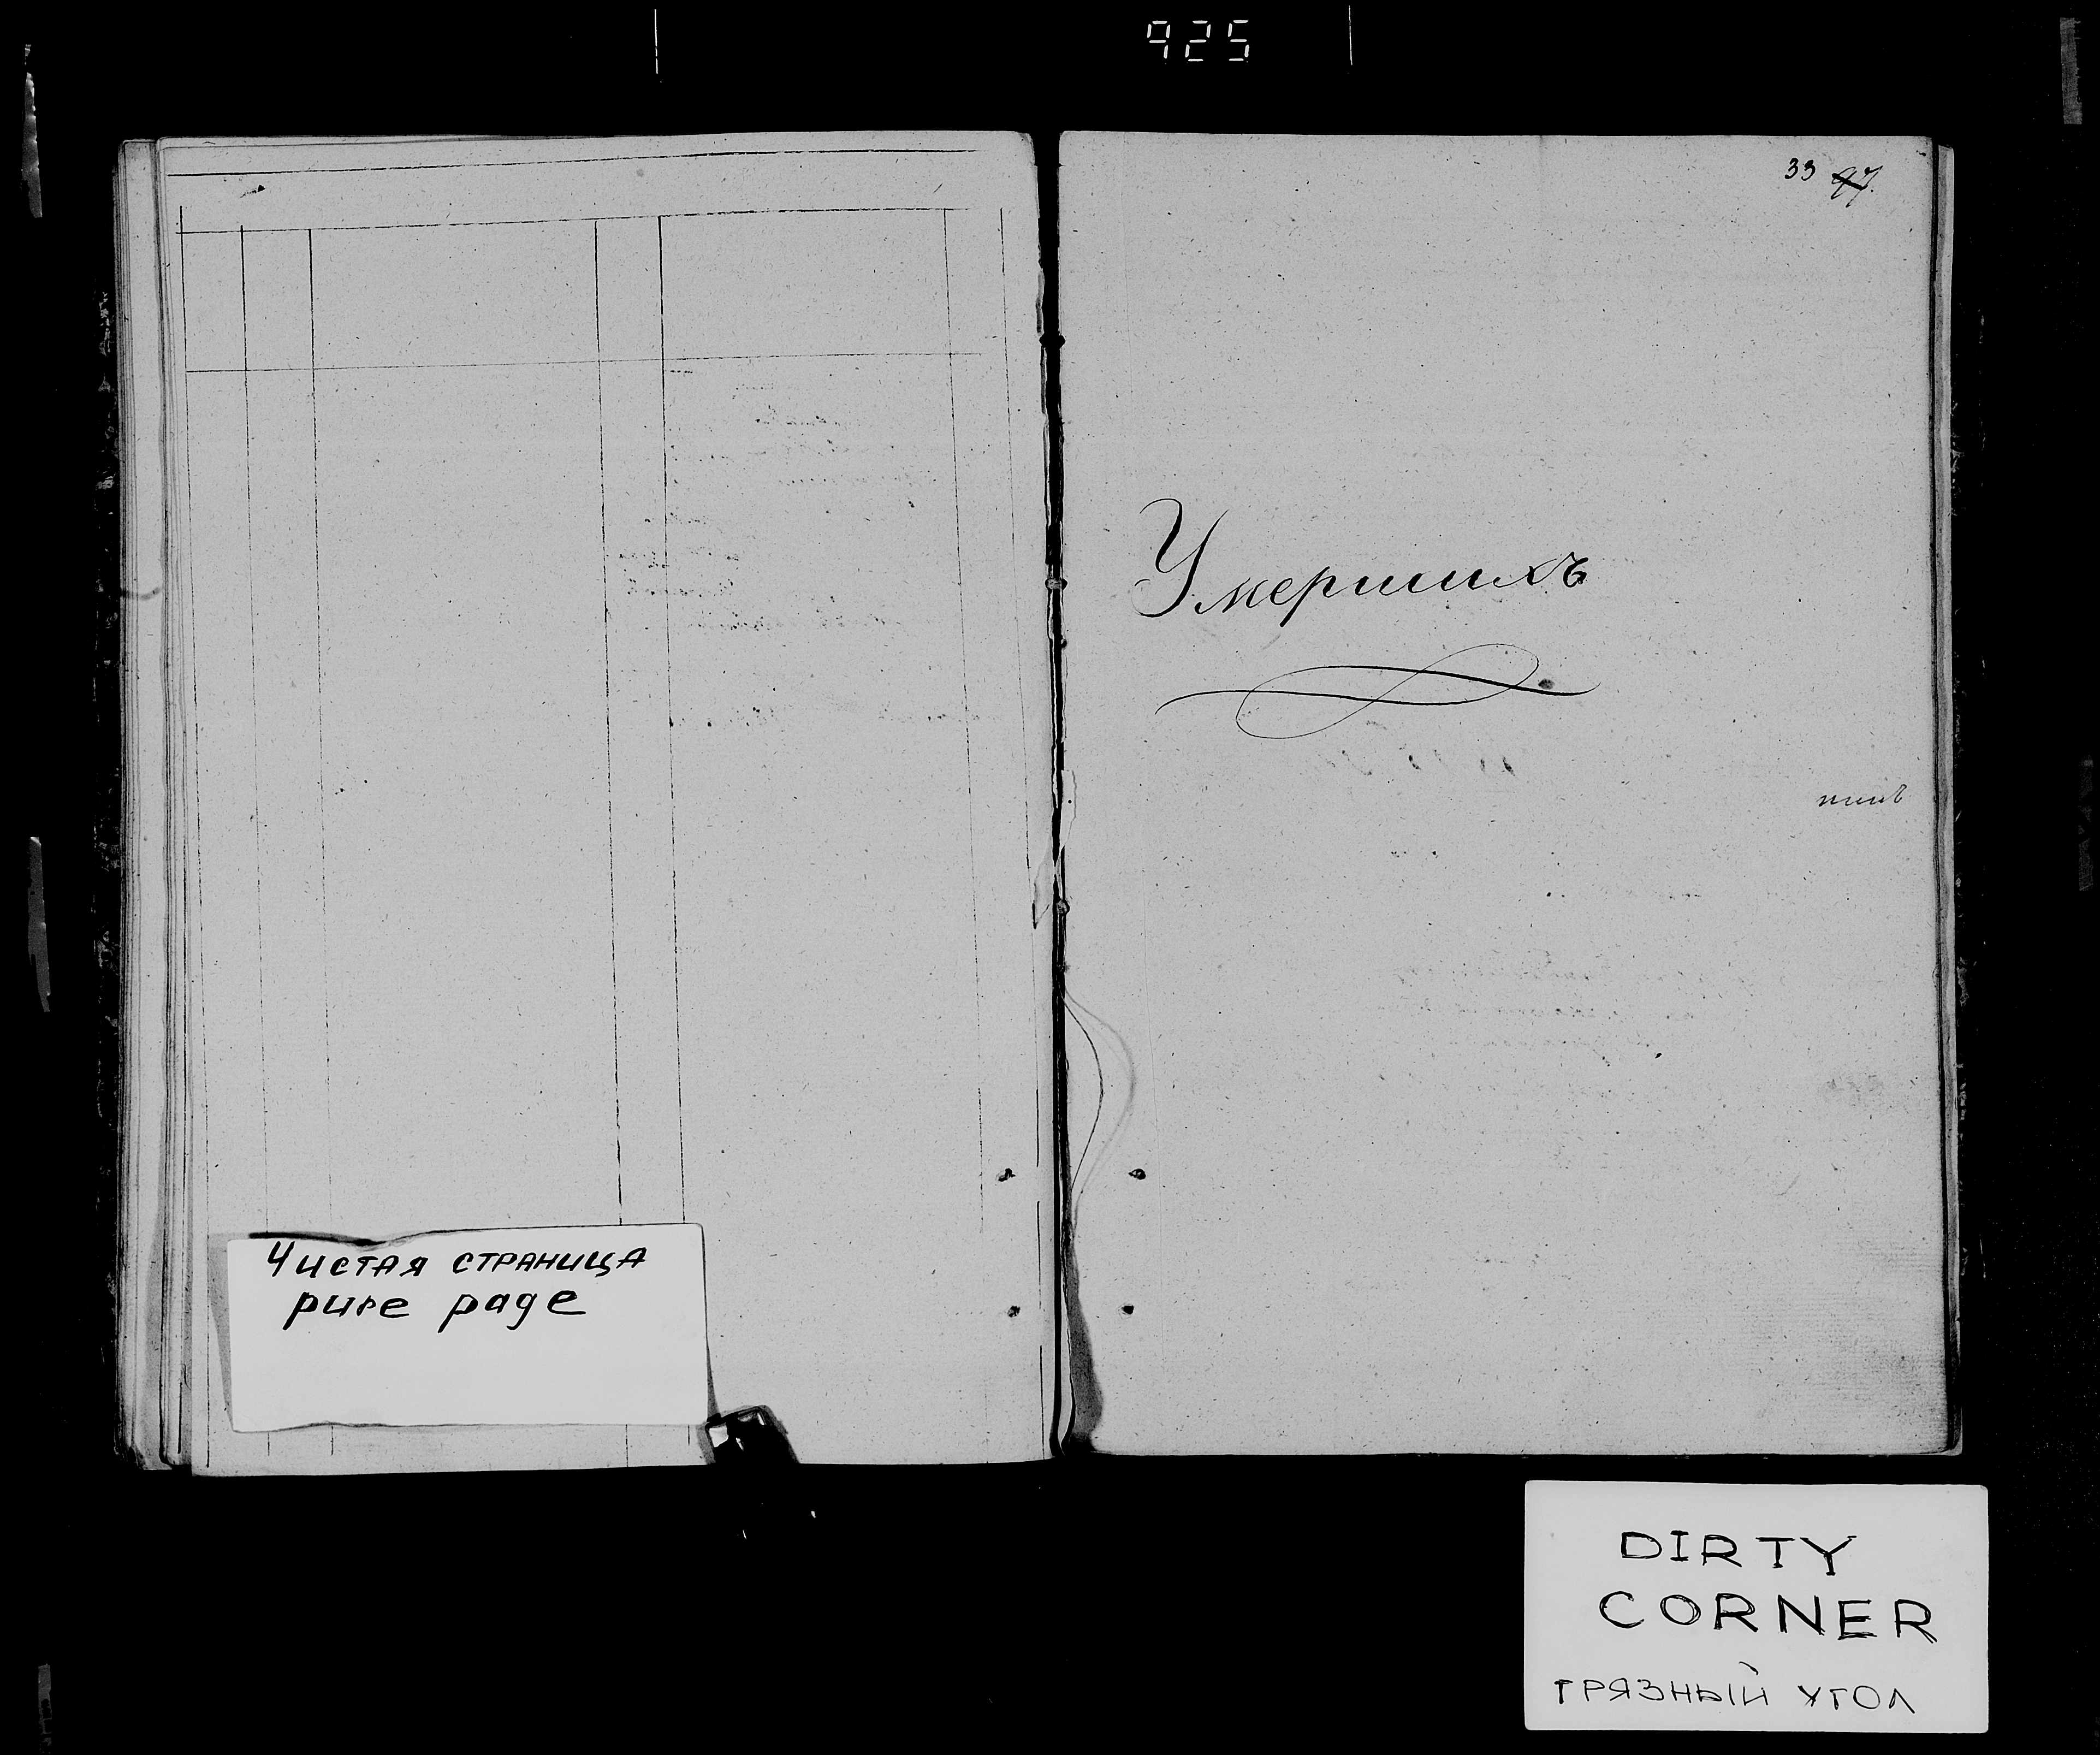 925
33 97.
Умершихъ
Чистая страница
pure page
DIRTY
CORNER
грязный угол